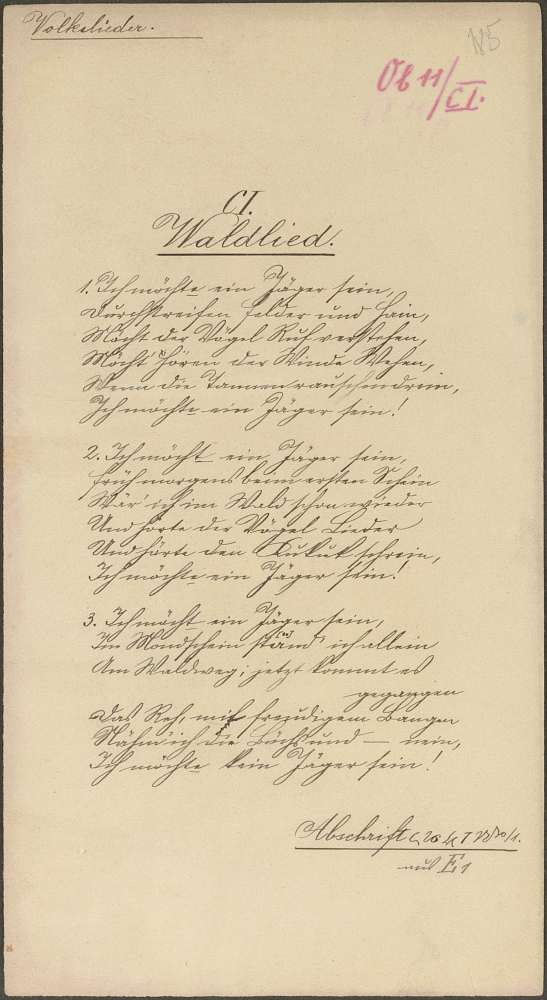 Volkslieder.
Ob 11/CI.
CI.
Waldlied.
1. Ich möchte ein Jäger sein,
Durchstreifen Felder und Hain,
Möcht der Vögel Ruf verstehen,
Möcht' hören der Winde Wehen,
Wenn die Tannen rauschen drein,
Ich möchte ein Jäger sein!
2. Ich möcht ein Jäger sein,
Früh morgens beim ersten Schein
Wär' ich im Wald schon wieder
Und hörte der Vögel Lieder
Und hörte den Kukuk schrein,
Ich möchte ein Jäger sein!
3. Ich möcht ein Jäger sein,
Im Mondschein ständ ich allein
Am Waldweg; jetzt kommt es
gegangen
Das Reh; mit freudigem Bangen
Nähm' ich die Büchs und — nein,
Ich möchte kein Jäger sein!
Abschrift
aus E1